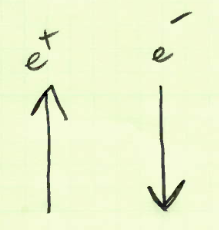 e⁺ e⁻